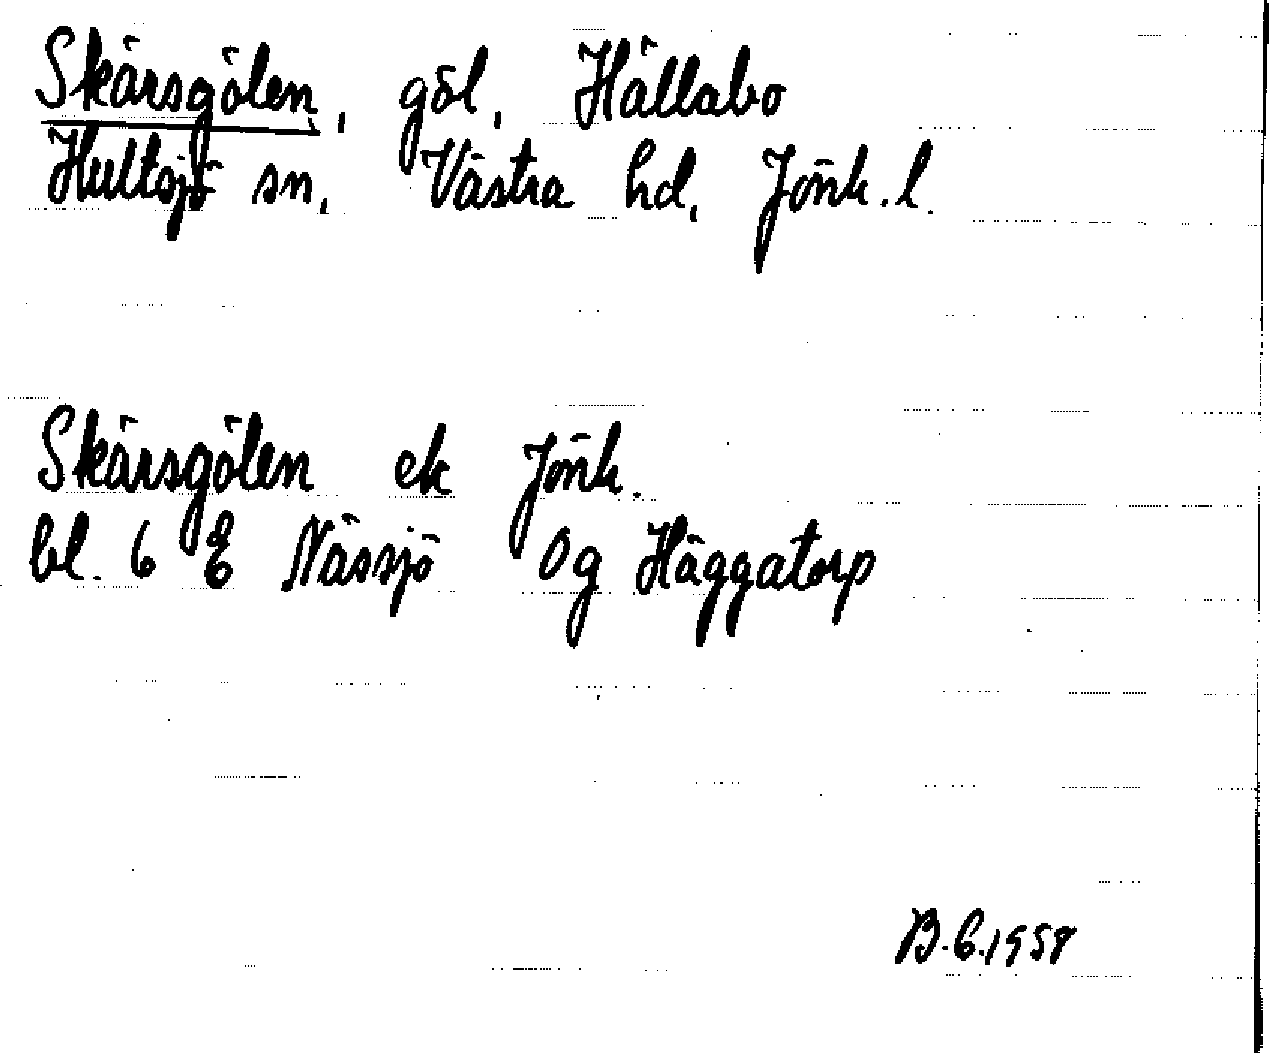 Skärsgölen, göl, Hällabo
Hultsjö sn, Västra hd, Jönk. l.
Skärsgölen ek Jönk.
bl. 6 E Nässjö Og Häggatorp
B.G.1958